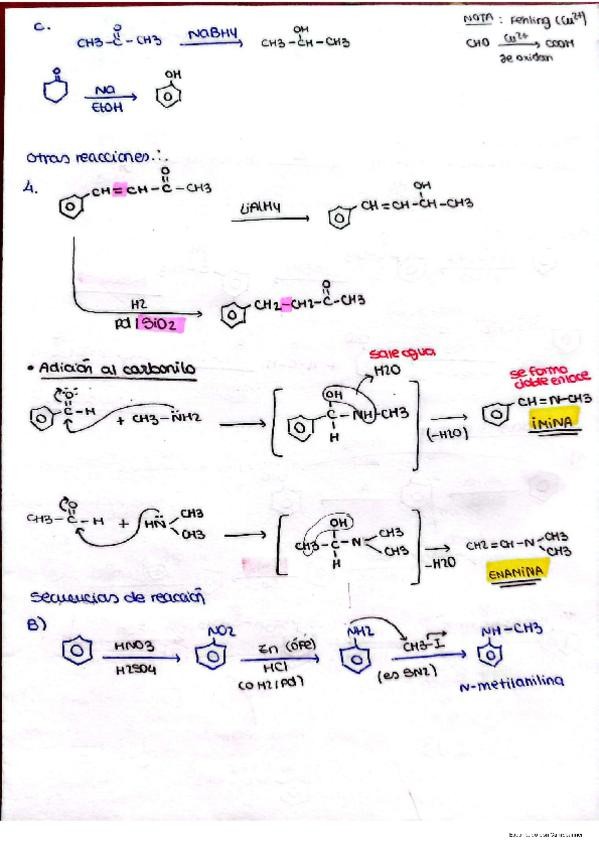 C.
CH3-C-CH3
O
NaBH4
CH3-CH-CH3
OH
NOTA: Fehling (Cu2+)
CHO Cu2+ COOH
se oxidan
O
Na
EtOH
OH
Otras reacciones∴
4.
CH=CH-C-CH3
O
LiAlH4
CH=CH-CH-CH3
OH
H2
Pd/SiO2
CH2-CH2-C-CH3
O
• Adición al carbonilo
sale agua
H2O
se forma
doble enlace
O
C-H
+ CH3-NH2
OH
C-NH-CH3
H
(-H2O)
CH=N-CH3
iMiNA
O
CH3-C-H + HN
CH3
CH3
OH
CH3-C-N
CH3
CH3
H
-H2O
CH2=CH-N
CH3
CH3
ENAMiNA
Secuencias de reacción
B)
HNO3
H2SO4
NO2
Zn (ó Fe)
HCl
(o H2/Pd)
NH2
CH3-I
(es SN2)
NH-CH3
N-metilanilina